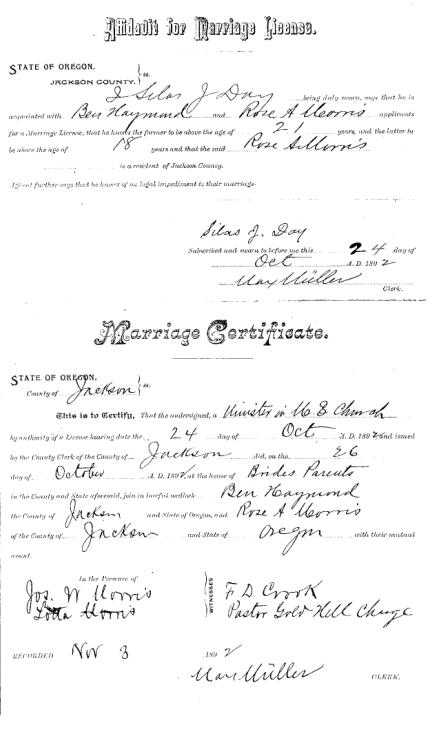 Affidavit for Marriage License.
STATE OF OREGON, } ss.
JACKSON COUNTY.
I Silas J Day being duly sworn, says that he is
acquainted with Ben Haymond and Rose A Morris applicants
for a Marriage License, that he knows the former to be above the age of 21 years, and the latter to
be above the age of 18 years and that the said Rose A Morris
is a resident of Jackson County.
Affiant further says that he knows of no legal impediment to their marriage.
Silas J. Day
Subscribed and sworn to before me this 24 day of
Oct A. D. 1892
Max Müller
Clerk.
Marriage Certificate.
STATE OF OREGON, } ss.
County of Jackson
This is to Certify, That the undersigned, a Minister in M E Church
by authority of a License bearing date the 24 day of Oct A. D. 1892 and issued
by the County Clerk of the County of Jackson did, on the 26
day of October A. D. 1892, at the house of Brides Parents
in the County and State aforesaid, join in lawful wedlock Ben Haymond
the County of Jackson and State of Oregon, and Rose A Morris
of the County of Jackson and State of Oregon with their mutual
consent.
In the Presence of
Jos. W Morris
Lotta Morris
WITNESSES
F D Crook
Pastor Gold Hill Charge
RECORDED Nov 3 1892
Max Müller CLERK.